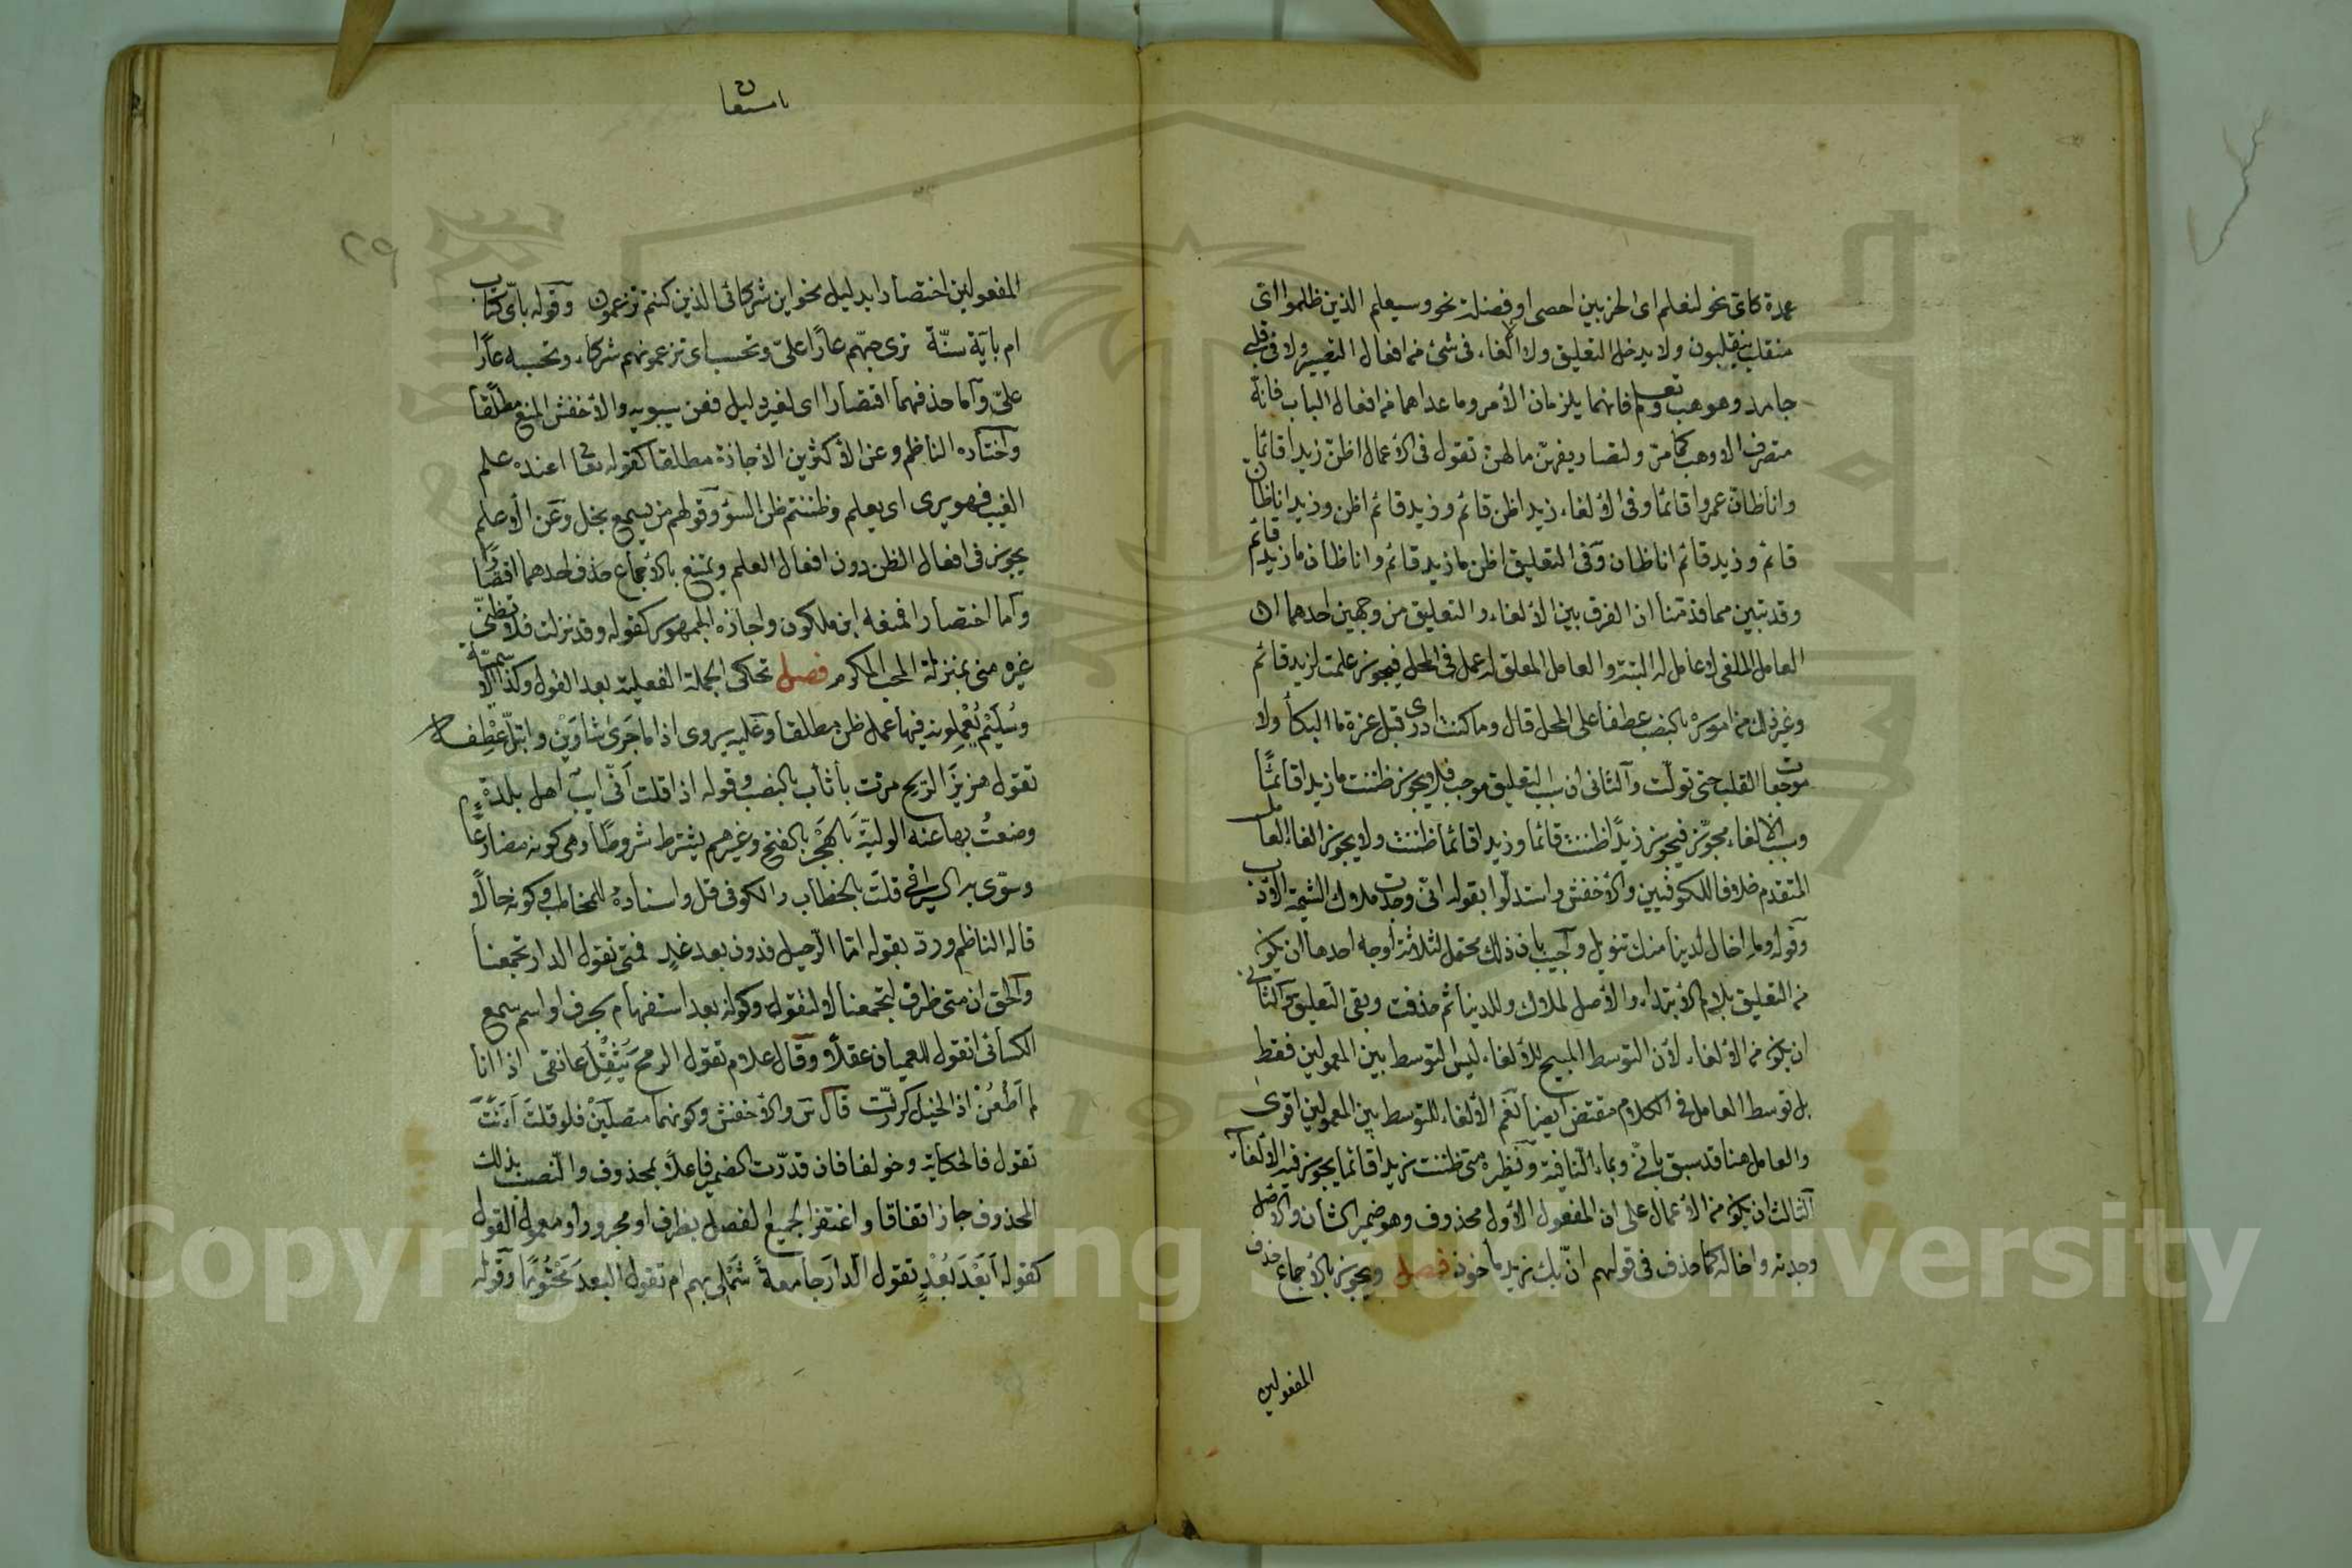 عمدة كان نحو لنعلم اى الحزبين احصى او فضلة نحو وسيعلم الذين ظلموا اى
منقلب ينقلبون ولا يدخل التعليق ولا الالغاء فى شئ من افعال التصيير ولا فى قلبى
جامد وهو هب وتعلم فانهما يلزمان الأمر وما عداهما من افعال الباب فانه
متصرف الا وهب كما مر ولتصاريفهن ما لهن تقول فى الأعمال اظن زيدا قائما
وانا ظان عمروا قائما وفى الألغاء زيد اظن قائم وزيد قائم اظن وزيد انا ظان
قائم وزيد قائم انا ظان وفى التعليق اظن ما زيد قائم وانا ظان ما زيد قائم
وقد تبين مما قدمنا ان الفرق بين الألغاء والتعليق من وجهين احدهما ان
العامل الملغى لا عامل له البتة والعامل المعلق له عمل فى المحل فيجوز علمت لزيد قائم
وغير ذلك من اموره بالنصب عطفا على المحل قال وما كنت ادرى قبل عزة ما البكأ ولا
موجعات القلب حتى تولت والثانى ان سبب التعليق موجب فلا يجوز ظننت ما زيدا قائما
وسبب الالغاء مجوز فيجوز زيدا ظننت قائما وزيدا قائما ظننت ولا يجوز الغاء العامل
المتقدم خلافا للكوفيين والأخفش واستدلوا بقوله انى وجدت ملاك الشيمة الادب
وقوله وما اخال لدينا منك تنويل واجيب بان ذلك محتمل لثلاثة أوجه احدها ان يكون
من التعليق بلام الأبتداء والأصل لملاك وللدينا ثم حذفت وبقى التعليق والثانى
ان يكون من الألغاء لأن التوسط المبيح للألغاء ليس التوسط بين المعمولين فقط
بل توسط العامل فى الكلام مقتض ايضا نعم الألغاء للتوسط بين المعمولين اقوى
والعامل هنا قد سبق بانى وبما النافية ونظيره متى ظننت زيدا قائما يجوز فيه الألغاء
الثالث ان يكون من الأعمال على ان المفعول الأول محذوف وهو ضمير الشأن والاصل
وجدته واخاله كما حذف فى قولهم ان بك زيد مأخوذ فصل ويجوز بالأجماع حذف
المفعولين
٢٩
المفعولين اختصارا بدليل نحو اين شركائى الذين كنتم تزعمون وقوله باى كتاب
ام بآية سنة ترى حبهم عارا على وتحسب اى تزعمونهم شركاء وتحسبه عارا
على وأما حذفهما اقتصارا اى لغير دليل فعن سيبويه والأخفش المنع مطلقا
واختاره الناظم وعن الأكثرين الأجازة مطلقا كقوله تعا اعنده علم
الغيب فهو يرى اى يعلم وظننتم ظن السوء وقولهم من يسمع يخل وعن الأعلم
يجوز فى افعال الظن دون افعال العلم ويمتنع بالأجماع حذف احدهما اقتصارا
وأما اختصارا فمنعه ابن ملكون واجازه الجمهور كقوله وقد نزلت فلا تظنى
غيره منى بمنزلة المحب المكرم فصل تحكى الجملة الفعلية بعد القول وكذا الاسمية
وسليم يعملونه فيها عمل ظن مطلقا وعليه يروى اذا ما جرى شأوين وابتل عطفه
تقول هزيز الريح مرت بأثاب بالنصب وقوله اذا قلت انى ايب اهل بلدة
وضعت بها عنه الولية بالهجر بالفتح وغيرهم يشترط شروطا وهى كونه مضارعا
وسوى به السيرافى قلت بالخطاب والكوفى قل واسناده للمخاطب وكونه حالا
قاله الناظم ورد بقوله اما الرحيل فدون بعد غد فمتى تقول الدار تجمعنا
والحق ان متى ظرف لتجمعنا لا لتقول وكونه بعد استفهام بحرف او اسم سمع
الكسائى اتقول للعميان عقلا وقال علام تقول الرمح يثقل عاتقى اذا انا
لم أطعن اذ الخيل كرت قال س والأخفش وكونهما متصلين فلو قلت أءنت
تقول فالحكاية وخولفا فان قدرت الضمير فاعلا بمحذوف والنصب بذلك
المحذوف جاز اتفاقا واغتفر الجميع الفصل بظرف او مجرور او معمول القول
كقوله أبعد بعد تقول الدار جامعة شملى بهم ام تقول البعد محتوما وقوله
Copyright © King Saud University